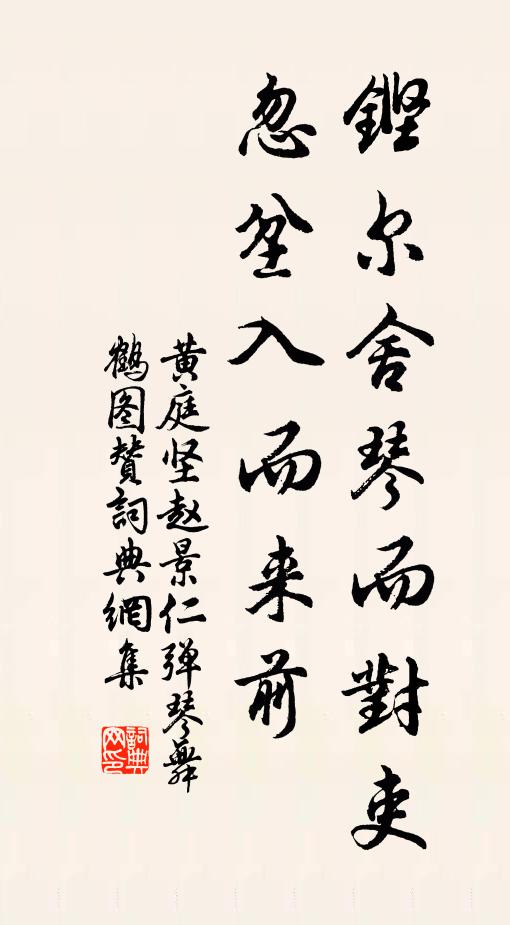 鏗尔舍琴而對吏
忽坌入而来前
黄庭坚赵景仁弹琴舞
鹤图赞詞典網集
詞典
网印